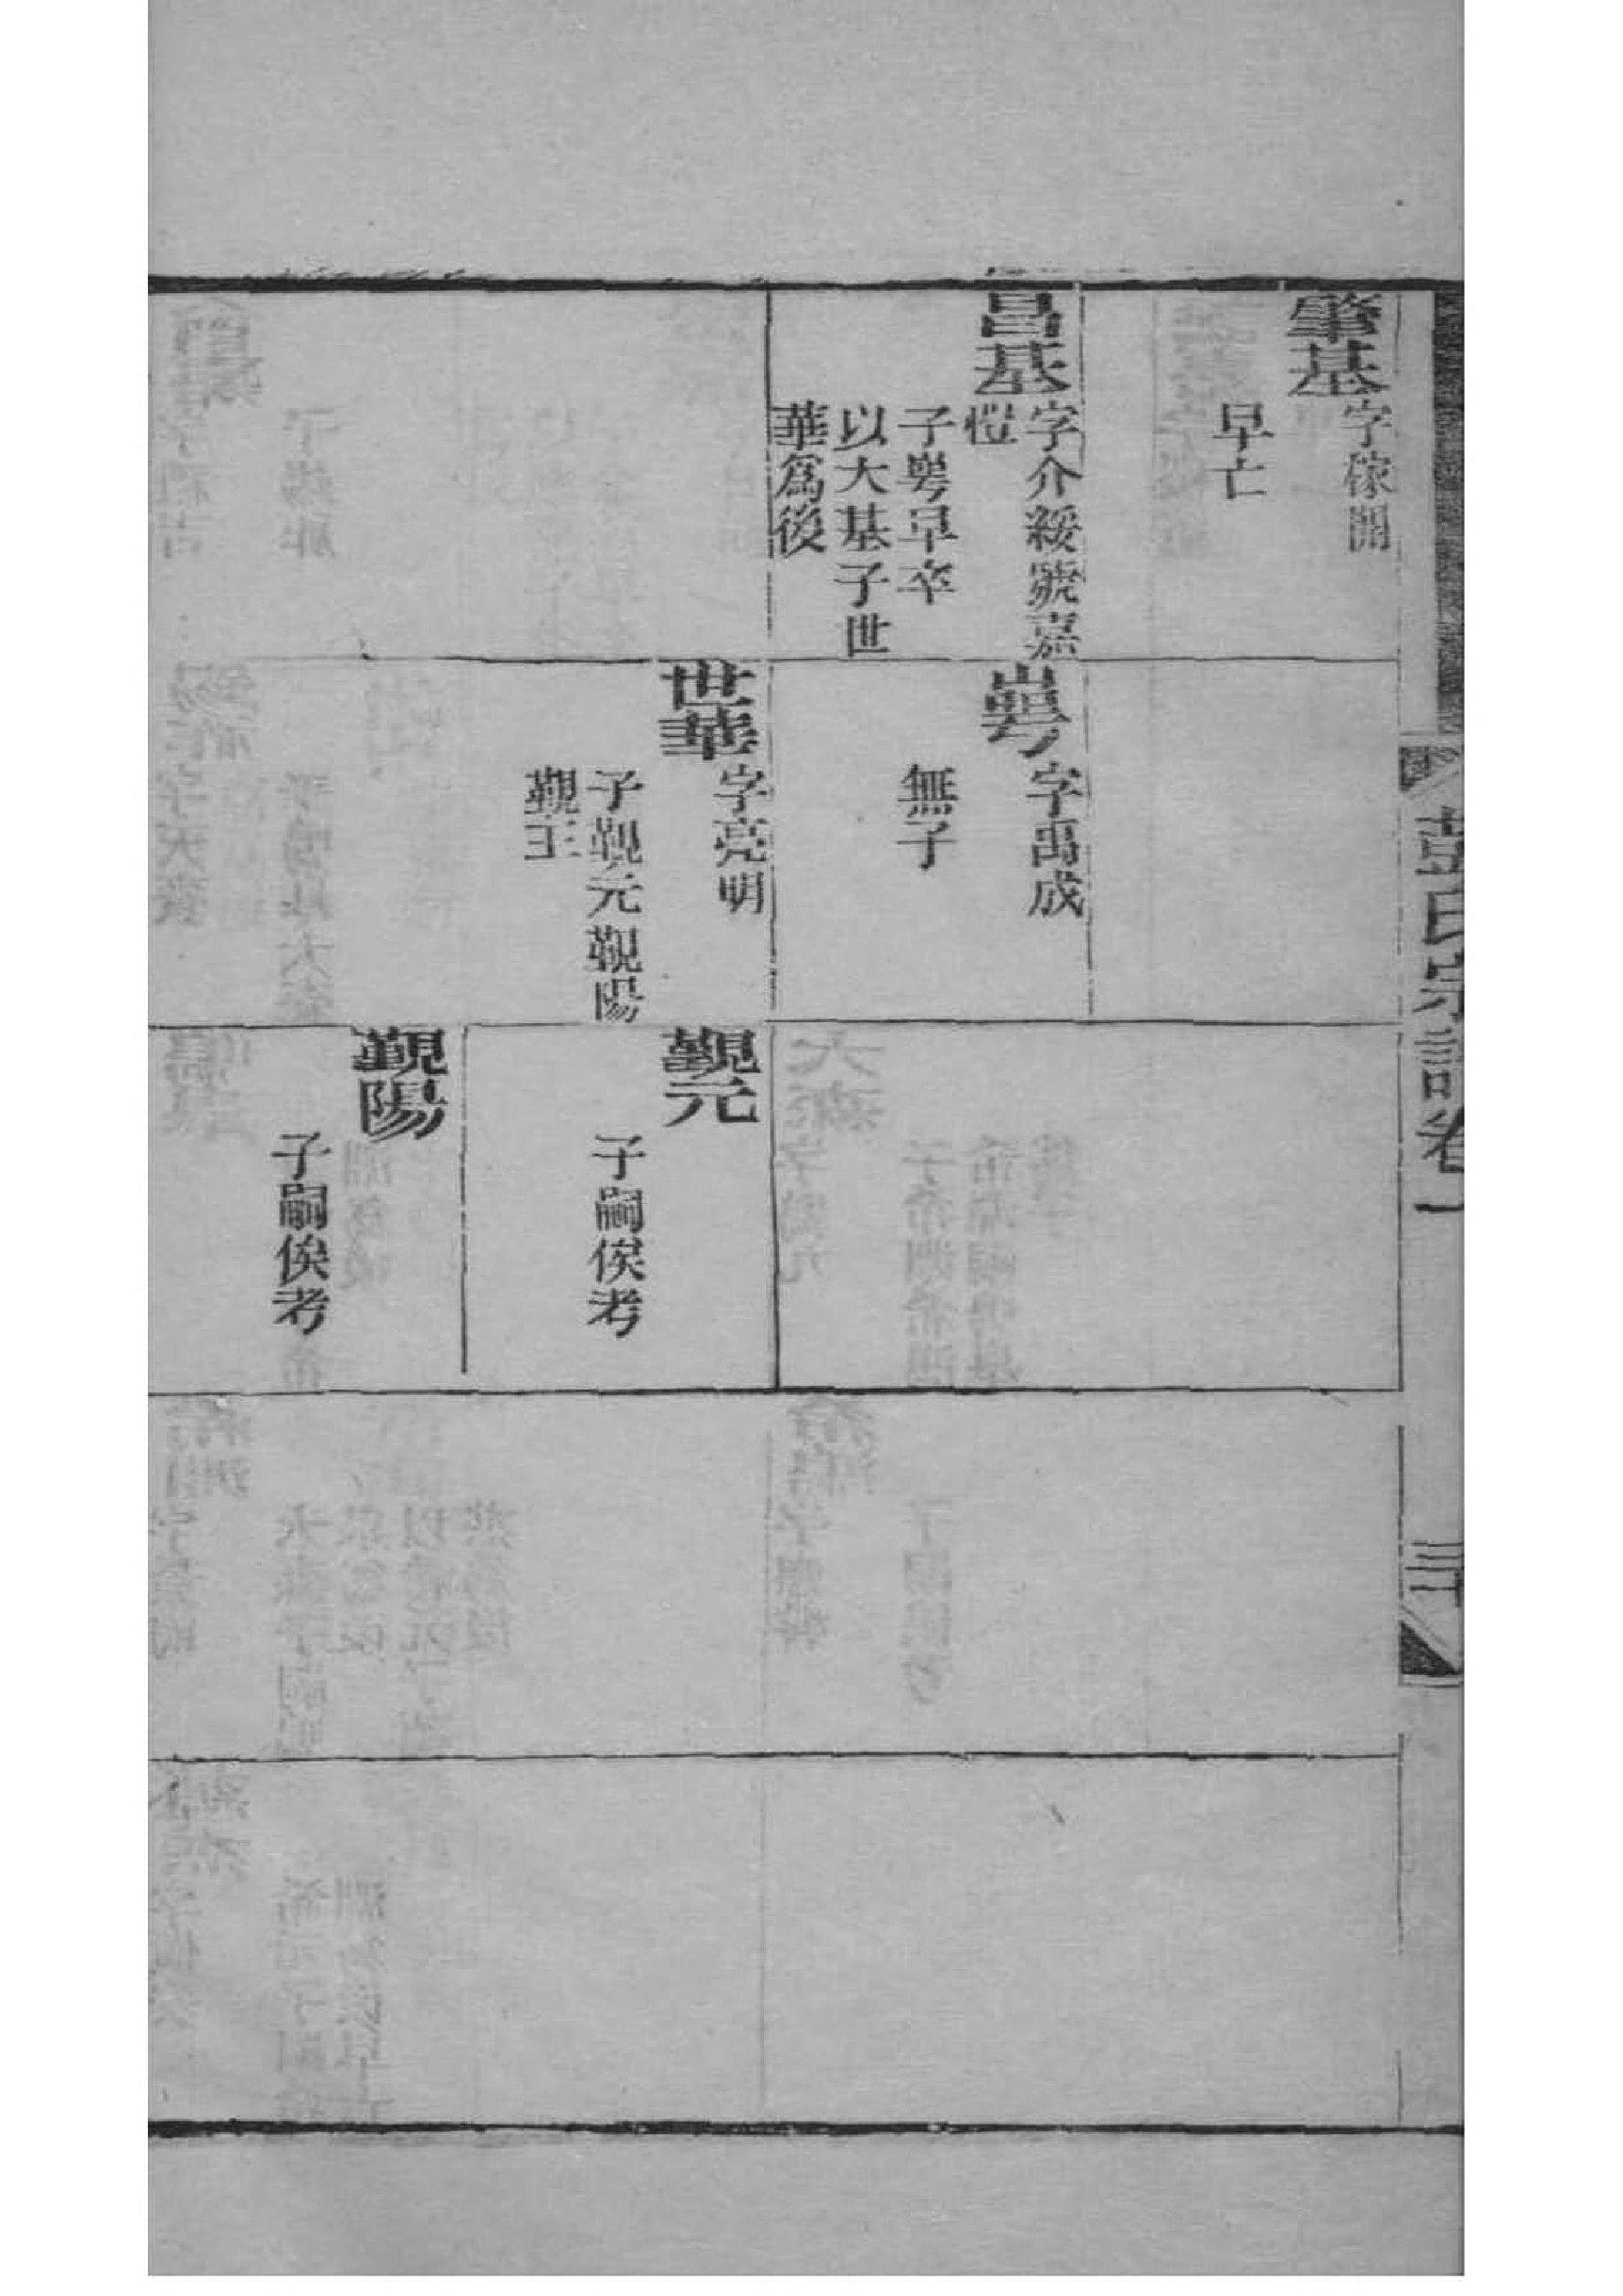 彭氏宗譜卷一
三十
肇基
字稼開
早亡
昌基
字介綏號嘉
愷
子粤早卒
以大基子世
華爲後
粤
字禹成
無子
世華
字亮明
子觀元觀陽
觀王
觀元
子嗣俟考
觀陽
子嗣俟考